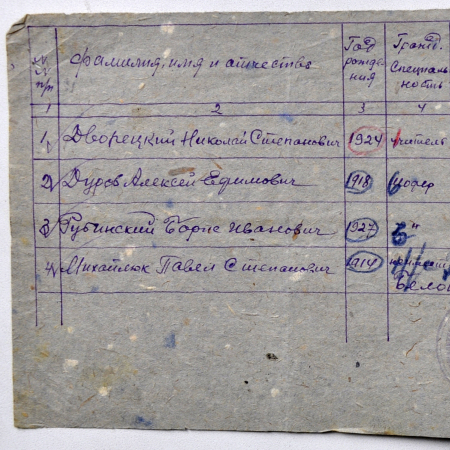 № п/п Фамилия, имя и отчество Год рождения Гражд. Специальность
1 2 3 4
1. Дворецкий Николай Степанович 1924 учитель
2. Дуров Алексей Ефимович 1918 шофер
3. Рубинский Борис Иванович 1927 "
4. Михайлюк Павел Степанович 1914